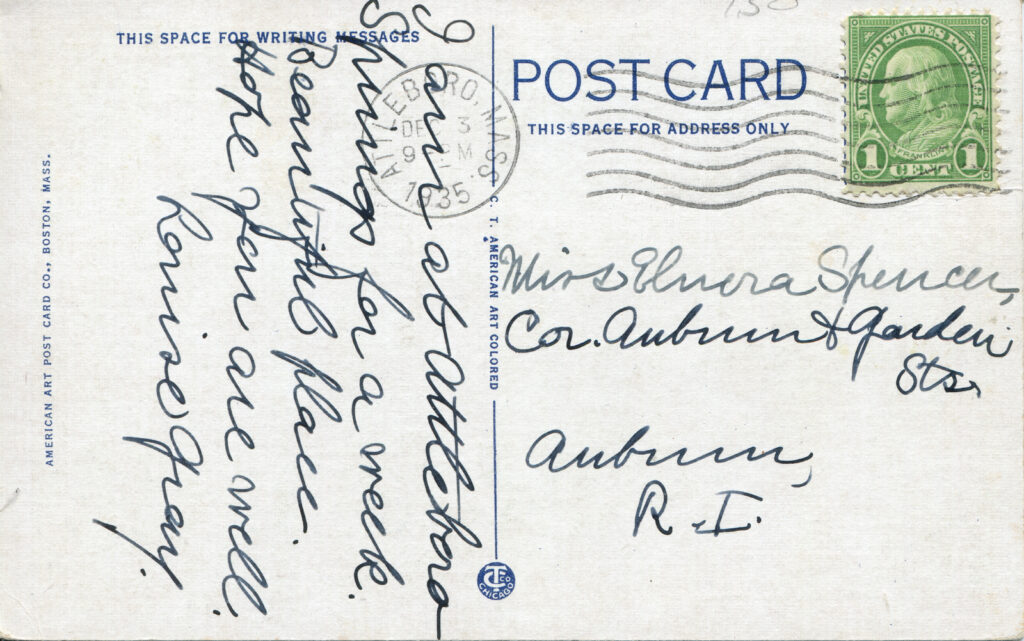 THIS SPACE FOR WRITING MESSAGES
I am at Attleboro
Springs for a week.
Beautiful place.
Hope you are well.
Louise Gray.
AMERICAN ART POST CARD CO., BOSTON, MASS.
C. T. AMERICAN ART COLORED
CT CO
CHICAGO
POST CARD
THIS SPACE FOR ADDRESS ONLY
ATTLEBORO, MASS.
DEC 3
9 PM
1935
UNITED STATES POSTAGE
FRANKLIN
1 CENT 1
Miss Elnora Spencer,
Cor. Auburn & Garden
Sts.
Auburn,
R.I.